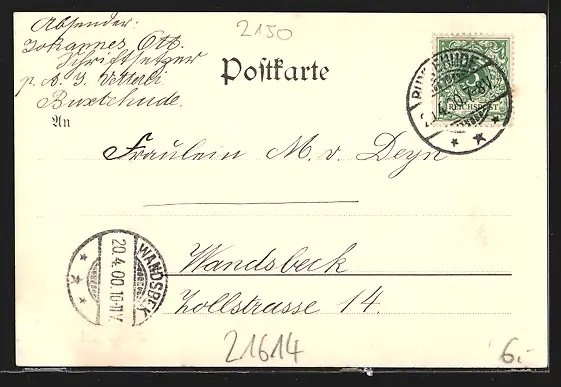 2150
Absender:
Johannes Ott.
Schriftsetzer
p. A. J. Vetterli
Buxtehude.
Postkarte
BUXTEHUDE
7-8V
REICHSPOST
An
Fräulein M. v. Deyn
Wandsbeck
Zollstrasse 14.
WANDSBEK
20.4.00.10-11V.
21614
6.-